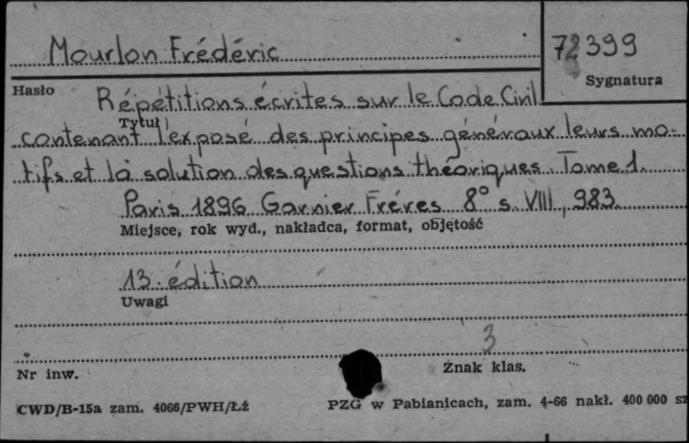 Mourlon Frédéric
72399
Sygnatura
Hasło
Répétitions écrites sur le Code Civil
Tytuł
contenant l'exposé des principes généraux leurs mo-
tifs et la solution des questions théoriques. Tome 1.
Paris 1896 Garnier Fréres 8° s. VIII, 983.
Miejsce, rok wyd., nakładca, format, objętość
13. édition
Uwagi
3
Nr inw.
Znak klas.
CWD/B-15a zam. 4066/PWH/Łź
PZG w Pabianicach, zam. 4-66 nakł. 400 000 sz